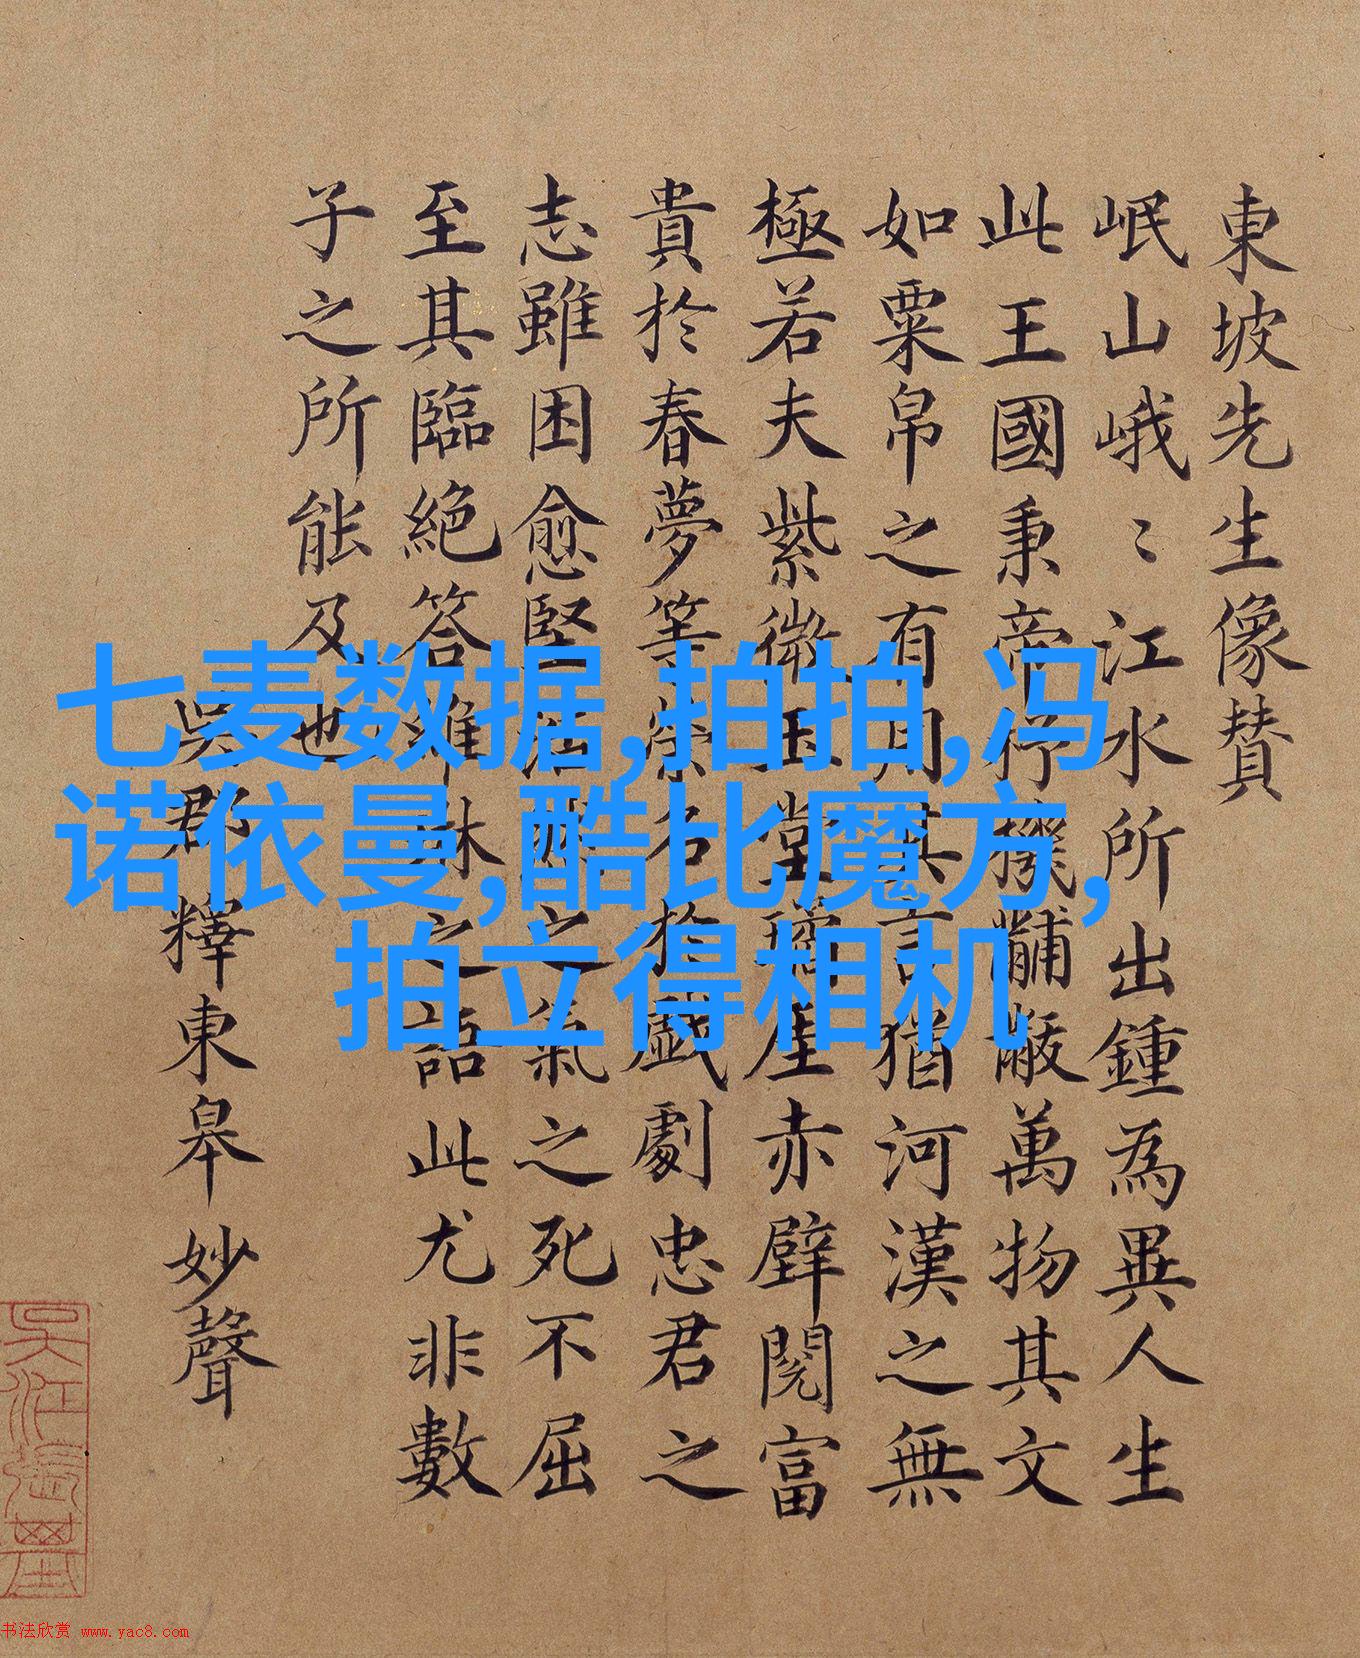 東坡先生像贊
岷山峨〻江水所出鍾為異人生
此王國秉帝杼機黼黻萬物其文
如粟帛之有用其言猶河漢之無
極若夫紫微玉堂瓊崖赤壁閱富
貴於春夢等榮名於戲劇忠君之
志雖困愈堅浩然之氣之死不屈
至其臨絕答維琳之語此尤非數
子之所能及也
吳郡釋東皋妙聲
七麦数据,拍拍,冯
诺依曼,酷比魔方,
拍立得相机
书法欣赏 www.yac8.com